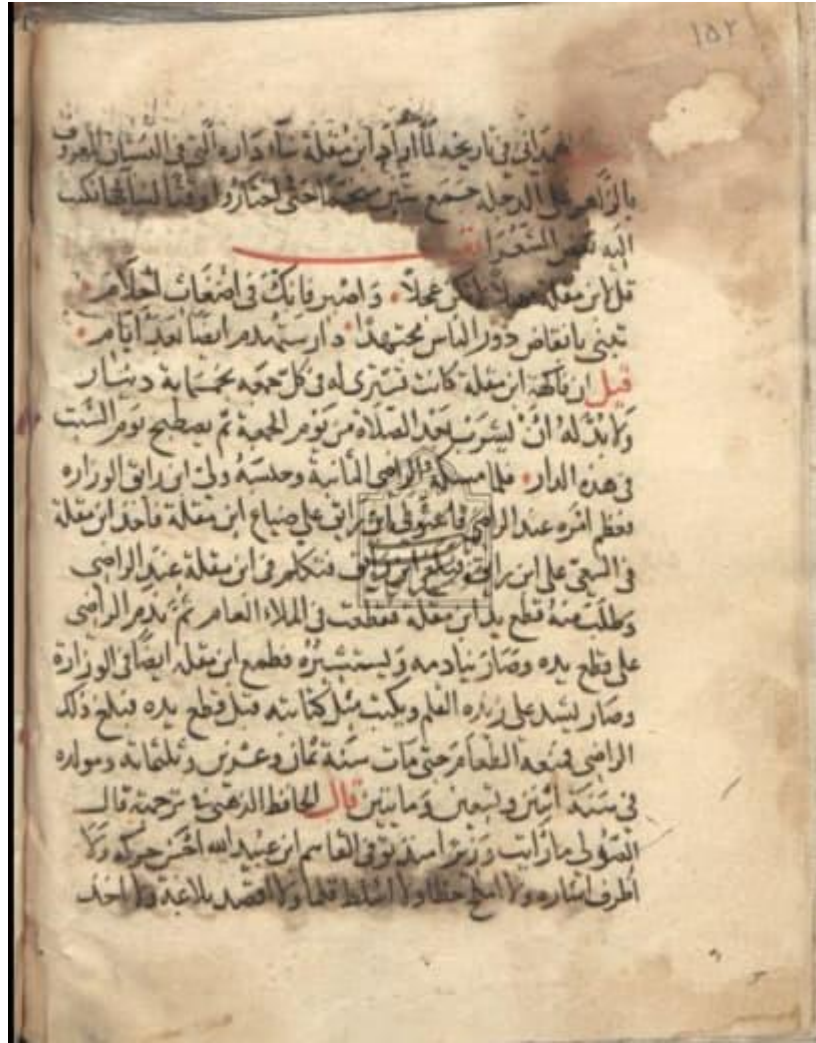 ١٥٢
الهمداني في تاريخه لما اراد ابن مقلة بناء داره التي في البستان المعروف
بالزاهر على الدجله جمع ستين منجما حتى اختاروا وقتا لبنائها فكتب
اليه بعض الشعرا
قل لابن مقلة مهلا لا تكن عجلا واصبر فانك في اضغاث احلام
تبنى بانقاض دور الناس مجتهدا دار ستهدم ايضا بعد ايام
قيل ان فاكهة ابن مقلة كانت تشترى له في كل جمعه بخمسماية دينار
ولا بد له ان يشرب بعد الصلاة من يوم الجمعة ثم يصطبح يوم السبت
في هذه الدار فلما مسكه الراضى الثانية وحبسه ولى ابن رائق الوزاره
فعظم امره عند الراضى ابن رائق على ضياع ابن مقلة فاخذ ابن مقلة
في السعى على ابن رائق فتكلم في ابن مقلة عند الراضى
وطلب منه قطع يد ابن مقلة فقطعت في الملاء العام ثم ندم الراضى
على قطع يده وصار ينادمه ويستشيره فطمع ابن مقله ايضا في الوزارة
وصار يشد على زنده القلم ويكتب مثل كتابته قبل قطع يده فبلغ ذلك
الراضى فمنعه الطعام حتى مات سنة ثمان وعشرين وثلثماته ومولده
في سنة اثنين وسبعين ومايتين قال الحافظ الذهبى ترجمته قال
الصولى ما رايت وزيرا منذ توفى القاسم ابن عبيد الله احسن حركه ولا
اظرف اشاره ولا املح خطا ولا اسلط قلما ولا اقصد بلاغة ولا اخذ